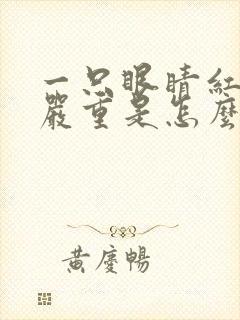 一只眼睛紅
嚴重是怎麼
黃慶暢